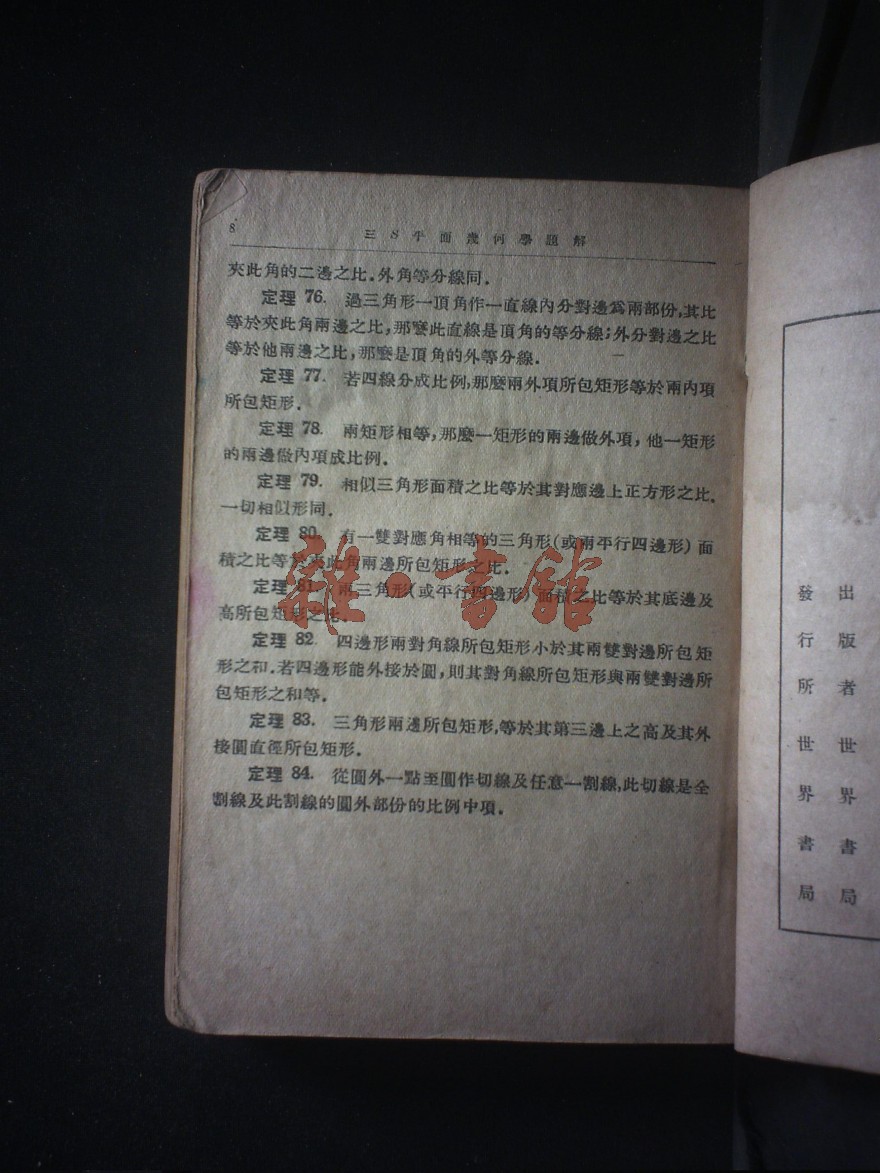 8
三S平面幾何學題解
夾此角的二邊之比.外角等分線同.
定理 76. 過三角形一頂角作一直線內分對邊爲兩部份,其比
等於夾此角兩邊之比,那麼此直線是頂角的等分線;外分對邊之比
等於他兩邊之比,那麼是頂角的外等分線.
定理 77. 若四線分成比例,那麼兩外項所包矩形等於兩內項
所包矩形.
定理 78. 兩矩形相等,那麼一矩形的兩邊做外項,他一矩形
的兩邊做內項成比例.
定理 79. 相似三角形面積之比等於其對應邊上正方形之比.
一切相似形同.
定理 80. 有一雙對應角相等的三角形(或兩平行四邊形)面
積之比等於夾此角兩邊所包矩形之比.
定理 81. 兩三角形(或平行四邊形)面積之比等於其底邊及
高所包矩形之比.
定理 82. 四邊形兩對角線所包矩形小於其兩雙對邊所包矩
形之和.若四邊形能外接於圓,則其對角線所包矩形與兩雙對邊所
包矩形之和等.
定理 83. 三角形兩邊所包矩形,等於其第三邊上之高及其外
接圓直徑所包矩形.
定理 84. 從圓外一點至圓作切線及任意一割線,此切線是全
割線及此割線的圓外部份的比例中項.
雜·書館
出版者 世界書局
發行所 世界書局